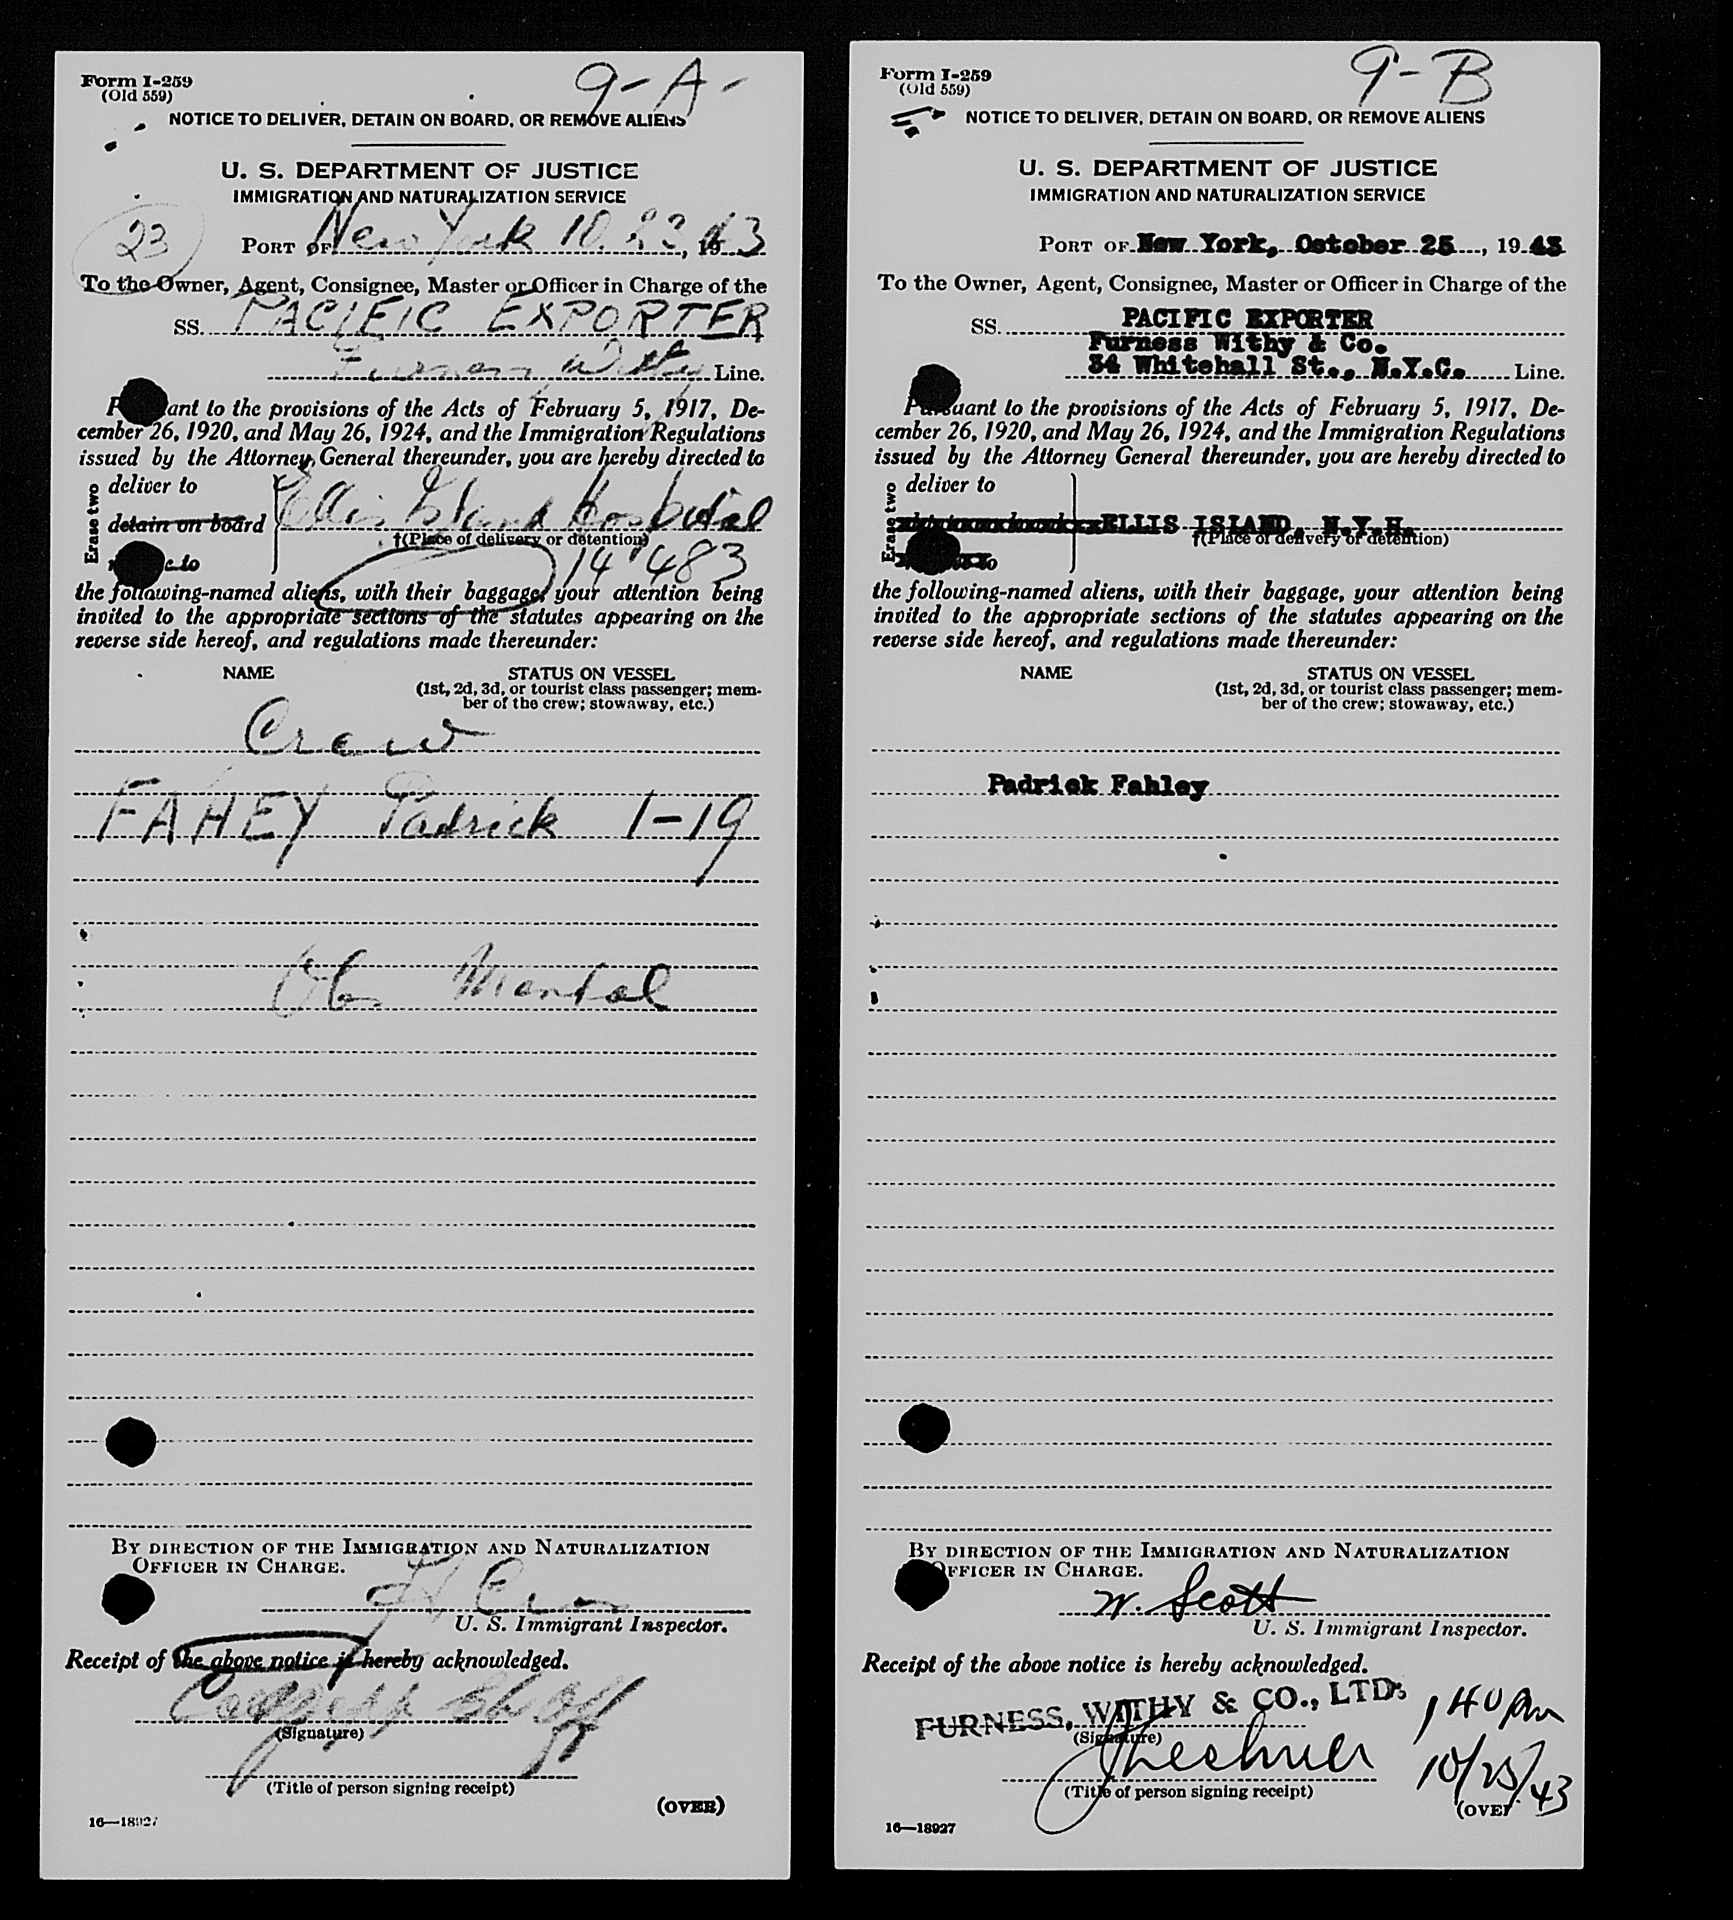 Form I-259
(Old 559)
9-A-
NOTICE TO DELIVER, DETAIN ON BOARD, OR REMOVE ALIENS
U. S. DEPARTMENT OF JUSTICE
IMMIGRATION AND NATURALIZATION SERVICE
23
PORT OF New York 10 , 1943
To the Owner, Agent, Consignee, Master or Officer in Charge of the
SS. PACIFIC EXPORTER
Furness Withy Line.
ant to the provisions of the Acts of February 5, 1917, De-
cember 26, 1920, and May 26, 1924, and the Immigration Regulations
issued by the Attorney General thereunder, you are hereby directed to
Erase two
deliver to
detain on board Ellis Island Hospital
†(Place of delivery or detention)
to 14 483
the following-named aliens, with their baggage, your attention being
invited to the appropriate sections of the statutes appearing on the
reverse side hereof, and regulations made thereunder:
NAME STATUS ON VESSEL
(1st, 2d, 3d, or tourist class passenger; mem-
ber of the crew; stowaway, etc.)
Crew
FAHEY Padrick 1-19
Mental
BY DIRECTION OF THE IMMIGRATION AND NATURALIZATION
OFFICER IN CHARGE.
U. S. Immigrant Inspector.
Receipt of the above notice is hereby acknowledged.
(Signature)
(Title of person signing receipt)
(OVER)
16—18927
Form I-259
(Old 559)
9-B
NOTICE TO DELIVER, DETAIN ON BOARD, OR REMOVE ALIENS
U. S. DEPARTMENT OF JUSTICE
IMMIGRATION AND NATURALIZATION SERVICE
PORT OF New York, October 25, 1943
To the Owner, Agent, Consignee, Master or Officer in Charge of the
SS. PACIFIC EXPORTER
Furness Withy & Co.
34 Whitehall St., N.Y.C. Line.
Pursuant to the provisions of the Acts of February 5, 1917, De-
cember 26, 1920, and May 26, 1924, and the Immigration Regulations
issued by the Attorney General thereunder, you are hereby directed to
Erase two
deliver to
ELLIS ISLAND, N.Y.H.
†(Place of delivery or detention)
to
the following-named aliens, with their baggage, your attention being
invited to the appropriate sections of the statutes appearing on the
reverse side hereof, and regulations made thereunder:
NAME STATUS ON VESSEL
(1st, 2d, 3d, or tourist class passenger; mem-
ber of the crew; stowaway, etc.)
Padrick Fahley
BY DIRECTION OF THE IMMIGRATION AND NATURALIZATION
OFFICER IN CHARGE.
W. Scott
U. S. Immigrant Inspector.
Receipt of the above notice is hereby acknowledged.
FURNESS, WITHY & CO., LTD. 1 40 pm
(Signature)
10/25/43
(Title of person signing receipt)
(OVER
16—18927